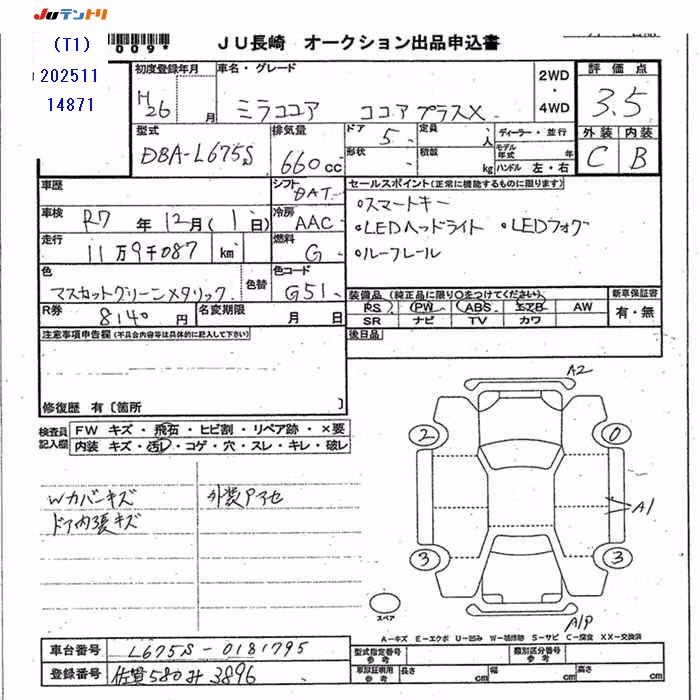 JUテントリ
(T1)
009*
JU長崎 オークション出品申込書
202511
14871
初度登録年月
車名・グレード
2WD
・
4WD
評価点
H26 月
ミラココア ココア プラスX
3.5
型式
排気量
ドア 5
定員 人
ディーラー・並行
外装 内装
DBA-L675S
660cc
形状
積載 kg
モデル年式 年
ハンドル 左・右
C B
車歴
シフト DAT
セールスポイント(正常に機能するものに限ります)
車検 R7年12月(1日)
冷房 AAC
・スマートキー
・LEDヘッドライト ・LEDフォグ
走行 11万9千087 km
燃料 G
・ルーフレール
色
マスカットグリーンメタリック
色替
色コード
G51
装備品(純正品に限り○をつけてください)
新車保証書
R券
8140円
名変期限
月 日
PS PW ABS エアB AW
有・無
SR ナビ TV カワ
注意事項申告欄(不具合内容等は具体的に記入して下さい)
後日品
修復歴 有〔箇所 〕
検査員記入欄
FW キズ・飛石・ヒビ割・リペア跡・×要
内装 キズ・汚レ・コゲ・穴・スレ・キレ・破レ
Wカバーキズ
外装Pアセ
ドア内張キズ
A2
2 0
A1
3 3
スペア
A1P
A-キズ E-エクボ U-凹み W-補修跡 S-サビ C-腐食 XX-交換済
車台番号 L675S-0181795
型式指定番号 参考
類別区分番号 参考
登録番号 佐賀580 3896
車庫証明用 参考
長さ cm 幅 cm 高さ cm